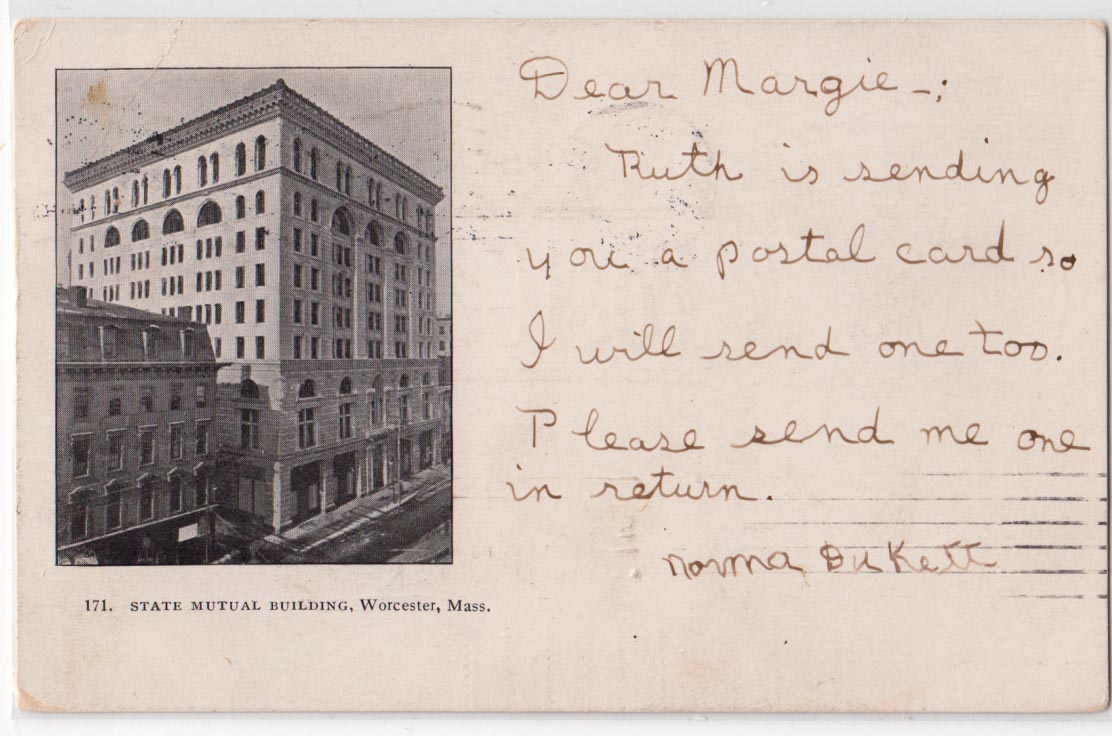 Dear Margie-;
Ruth is sending
you a postal card so
I will send one too.
Please send me one
in return.
Norma DuKett
171. STATE MUTUAL BUILDING, Worcester, Mass.